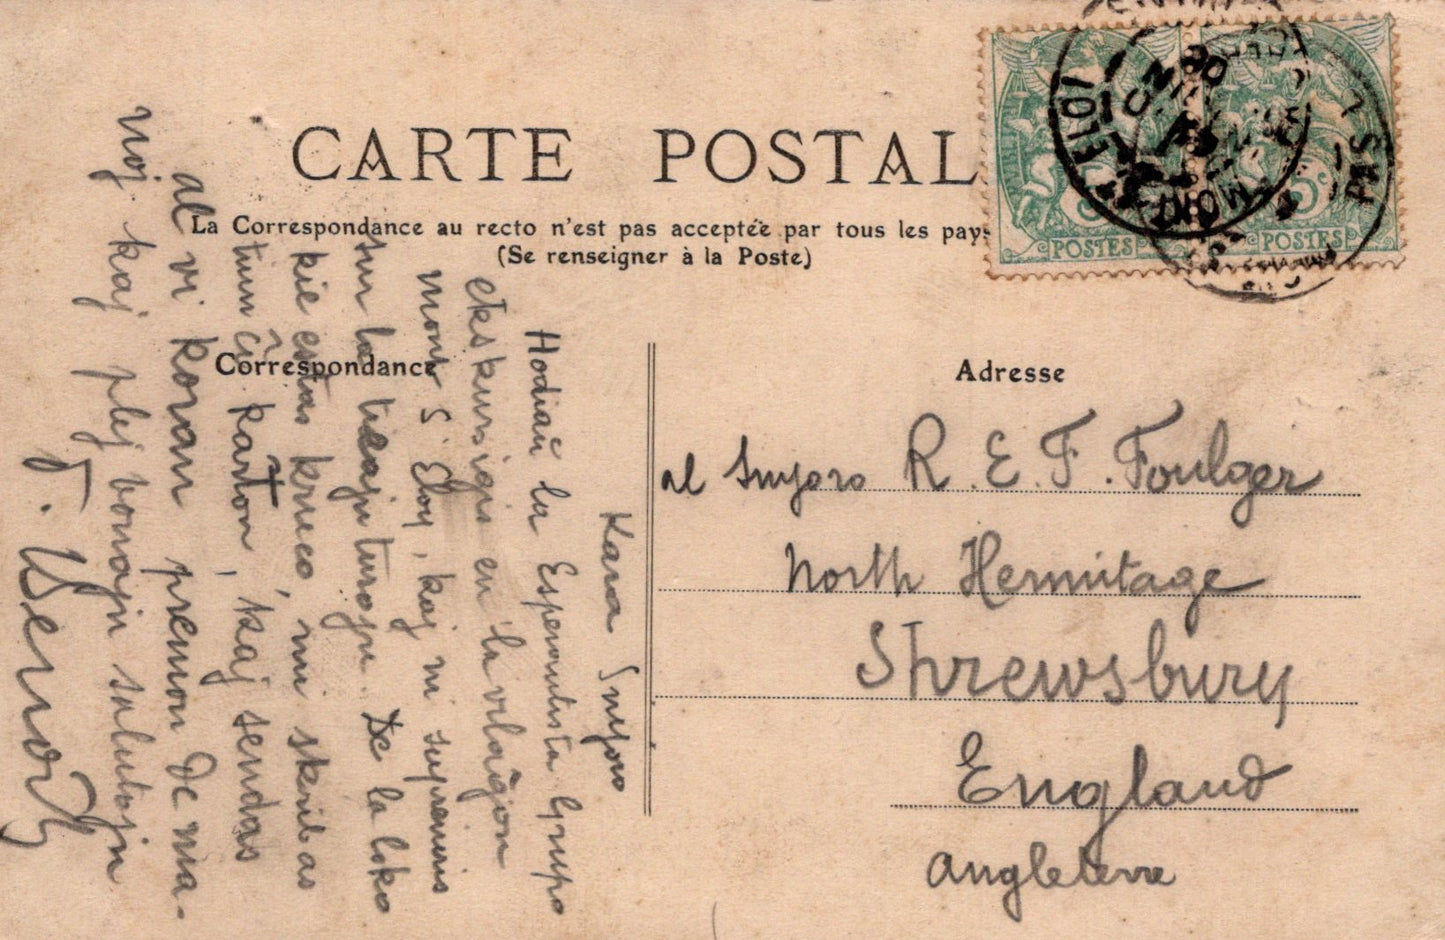 CARTE POSTAL
La Correspondance au recto n'est pas acceptée par tous les pays
(Se renseigner à la Poste)
Correspondance
Adresse
5c
POSTES
5c
POSTES
MONT
ELOI
Kara Sinjoro
Hodiaŭ la Esperantista Grupo
ekskursigis en la vilaĝon
Mont S. Eloy, kaj ni supreniris
sur la turojn. De la loko
kie estas kruco, mi skribas
tiun ĉi karton, kaj sendas
al vi koran premon de ma-
noj kaj plej bonajn salutojn
al Sinjoro R. E. F. Foulger
North Hermitage
Shrewsbury
England
Angleterre